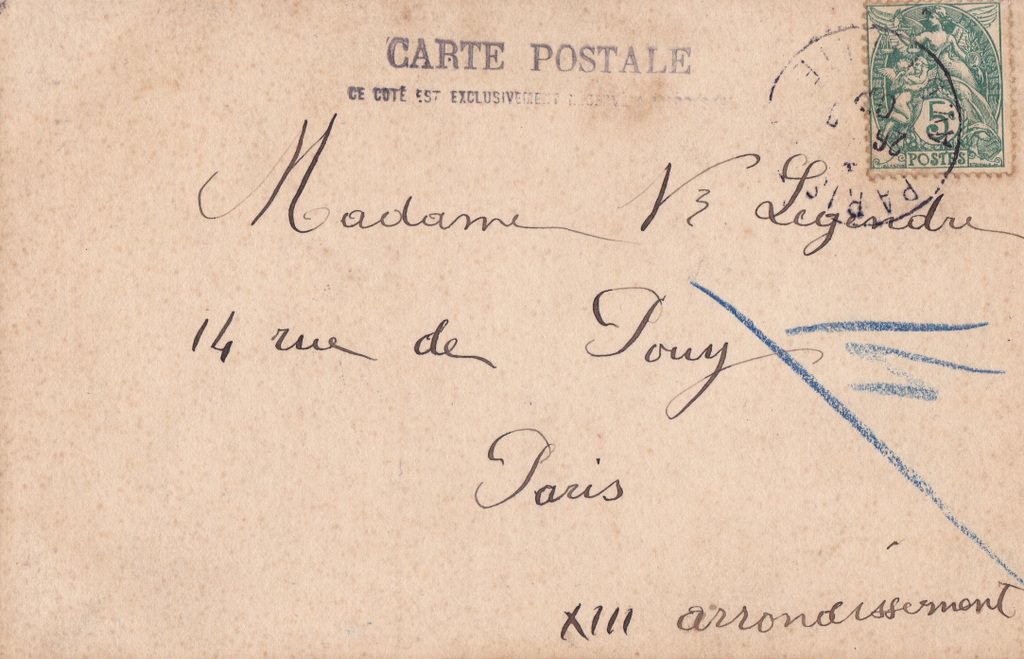 CARTE POSTALE
CE COTÉ EST EXCLUSIVEMENT
5
POSTES
PARIS
Madame Vve Legendre
14 rue de Pouy
Paris
XIII arrondissement